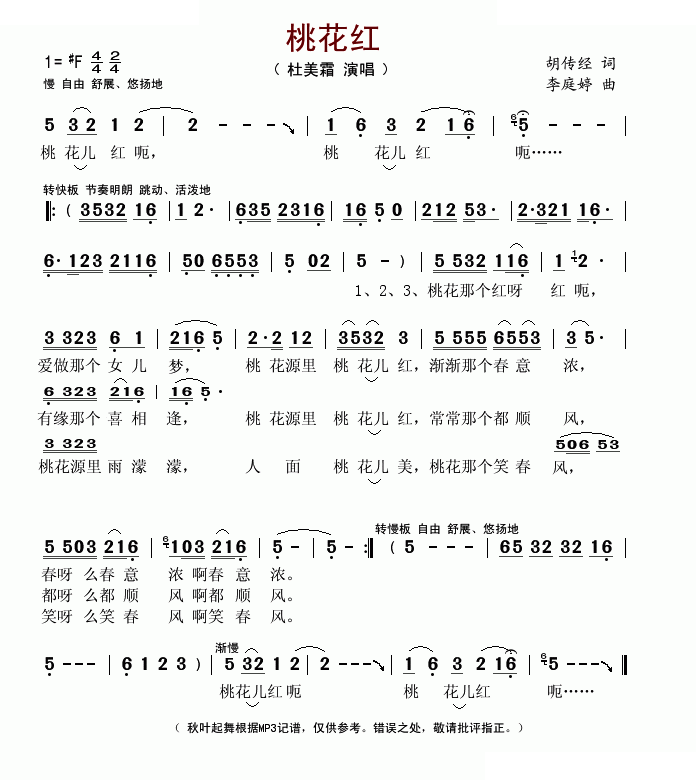 桃花红
（ 杜美霜 演唱 ）
1= #F 4/4 2/4
胡传经 词
李庭婷 曲
慢 自由 舒展、悠扬地
5 3 2 1 2 | 2 - - - | 1 6 3 2 1 6 | 6 5 - - - |
桃 花儿 红 呃， 桃 花儿 红 呃……
转快板 节奏明朗 跳动、活泼地
‖: ( 3532 16 | 1 2· | 635 2316 | 16 5 0 | 212 53· | 2·321 16· |
6·123 2116 | 50 6553 | 5 02 | 5 - ) | 5 532 116 | 1 1 2· |
1、2、3、桃花那个红呀 红 呃，
3 323 6 1 | 216 5 | 2·2 12 | 3532 3 | 5 555 6553 | 3 5· |
爱做那个 女 儿 梦， 桃 花源里 桃 花儿 红，渐渐那个春 意 浓，
6 323 216 | 16 5·
有缘那个 喜 相 逢， 桃 花源里 桃 花儿 红，常常那个都 顺 风，
3 323 506 53
桃花源里 雨 濛 濛， 人 面 桃 花儿 美，桃花那个笑 春 风，
转慢板 自由 舒展、悠扬地
5 503 216 | 6 103 216 | 5 - | 5 - :‖ ( 5 - - - | 65 32 32 16 |
春呀 么春 意 浓 啊春 意 浓。
都呀 么都 顺 风 啊都 顺 风。
笑呀 么笑 春 风 啊笑 春 风。
渐慢
5 - - - | 6 1 2 3 ) | 5 32 1 2 | 2 - - - | 1 6 3 2 16 | 6 5 - - - ‖
桃花儿红 呃 桃 花儿红 呃……
（ 秋叶起舞根据MP3记谱，仅供参考。错误之处，敬请批评指正。）